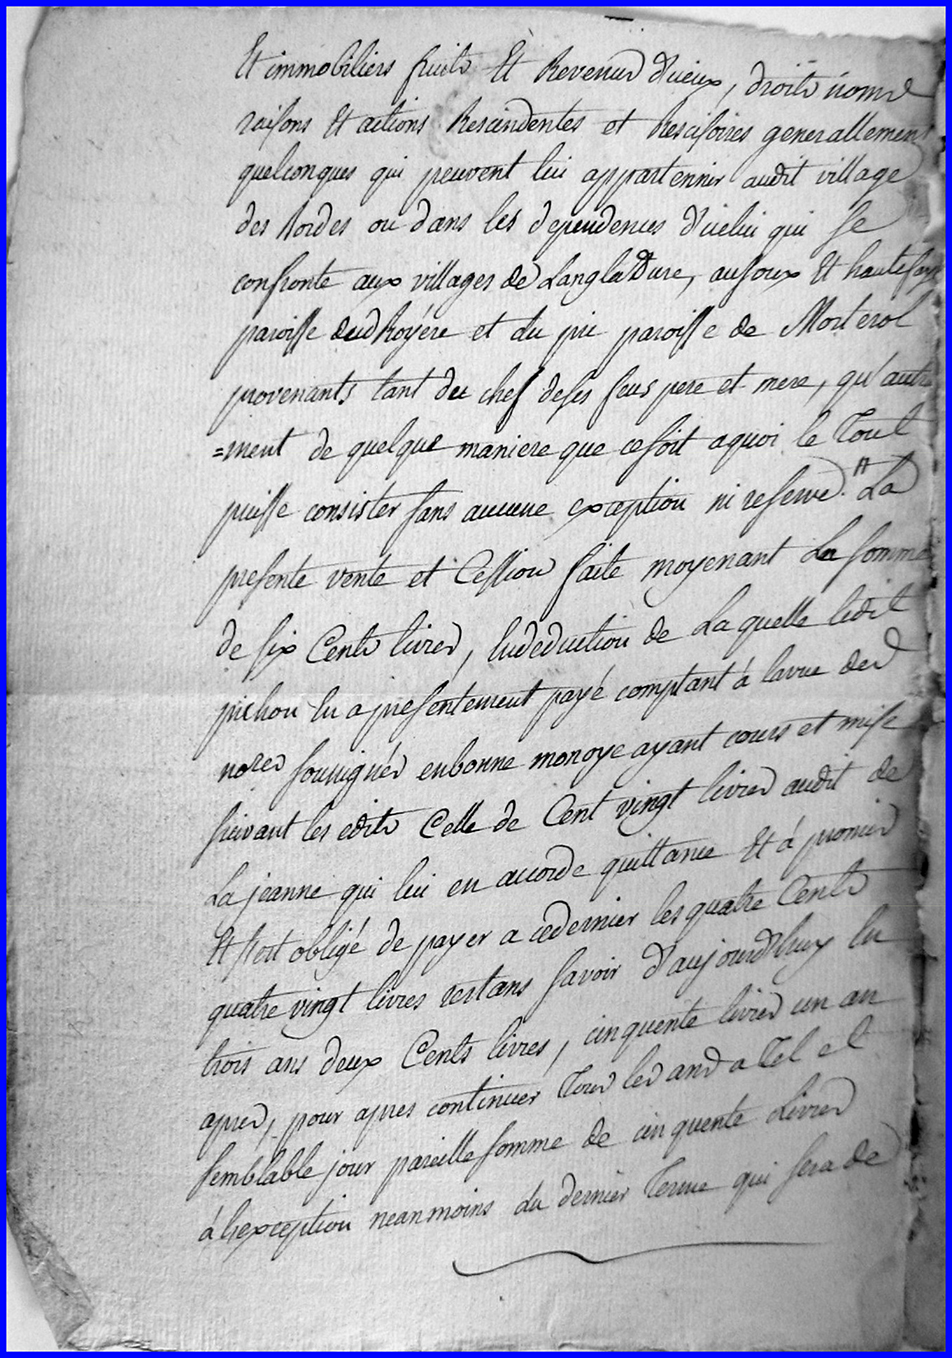 Et immobiliers fruits Et Revenus d'iceux, droits noms
raisons Et actions Rescindentes et Rescisoires generallement
quelconques qui peuvent lui appartennir audit village
des bordes ou dans les dependences d'icelui qui se
confronte aux villages de Langladure, aufoux Et hautefaye
paroisse dud Royére et du pic paroisse de Morterol
provenants tant du chef deses feus pere et mere, qu'autre
=ment de quelque maniere que cesoit aquoi le Tout
puisse consister sans aucune exception ni reserve. La
presente vente et Cession faite moyenant La somme
de six Cents livres, Endeduction de La quelle ledit
pichou lu a presentement payé comptant á lavue des
nores soussignés enbonne monoye ayant cours et mise
suivant les edits Celle de Cent vingt livres audit de
La jeanne qui lui en accorde quittance Et á promis
Et s'est obligé de payer a cedernier les quatre Cents
quatre vingt livres restans savoir d'aujourdhuy En
trois ans deux Cents livres, cinquente livres un an
apres, pour apres continuer Tous les ans a Tel et
semblable jour pareille somme de cinquente Livres
á lexception neanmoins du dernier Terme qui sera de